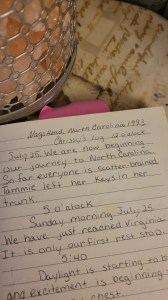 Nags Head, North Carolina 1993
Log 12 o'clock
July 25. We are now beginning
our journey to North Carolina.
So far everyone is scatter-brained
Tammie left her keys in her
trunk.
5 o'clock
Sunday morning July 25
We have just reached Virginia
It is only our first rest stop.
5:40
Daylight is starting to b
and excitement is beginning
chest